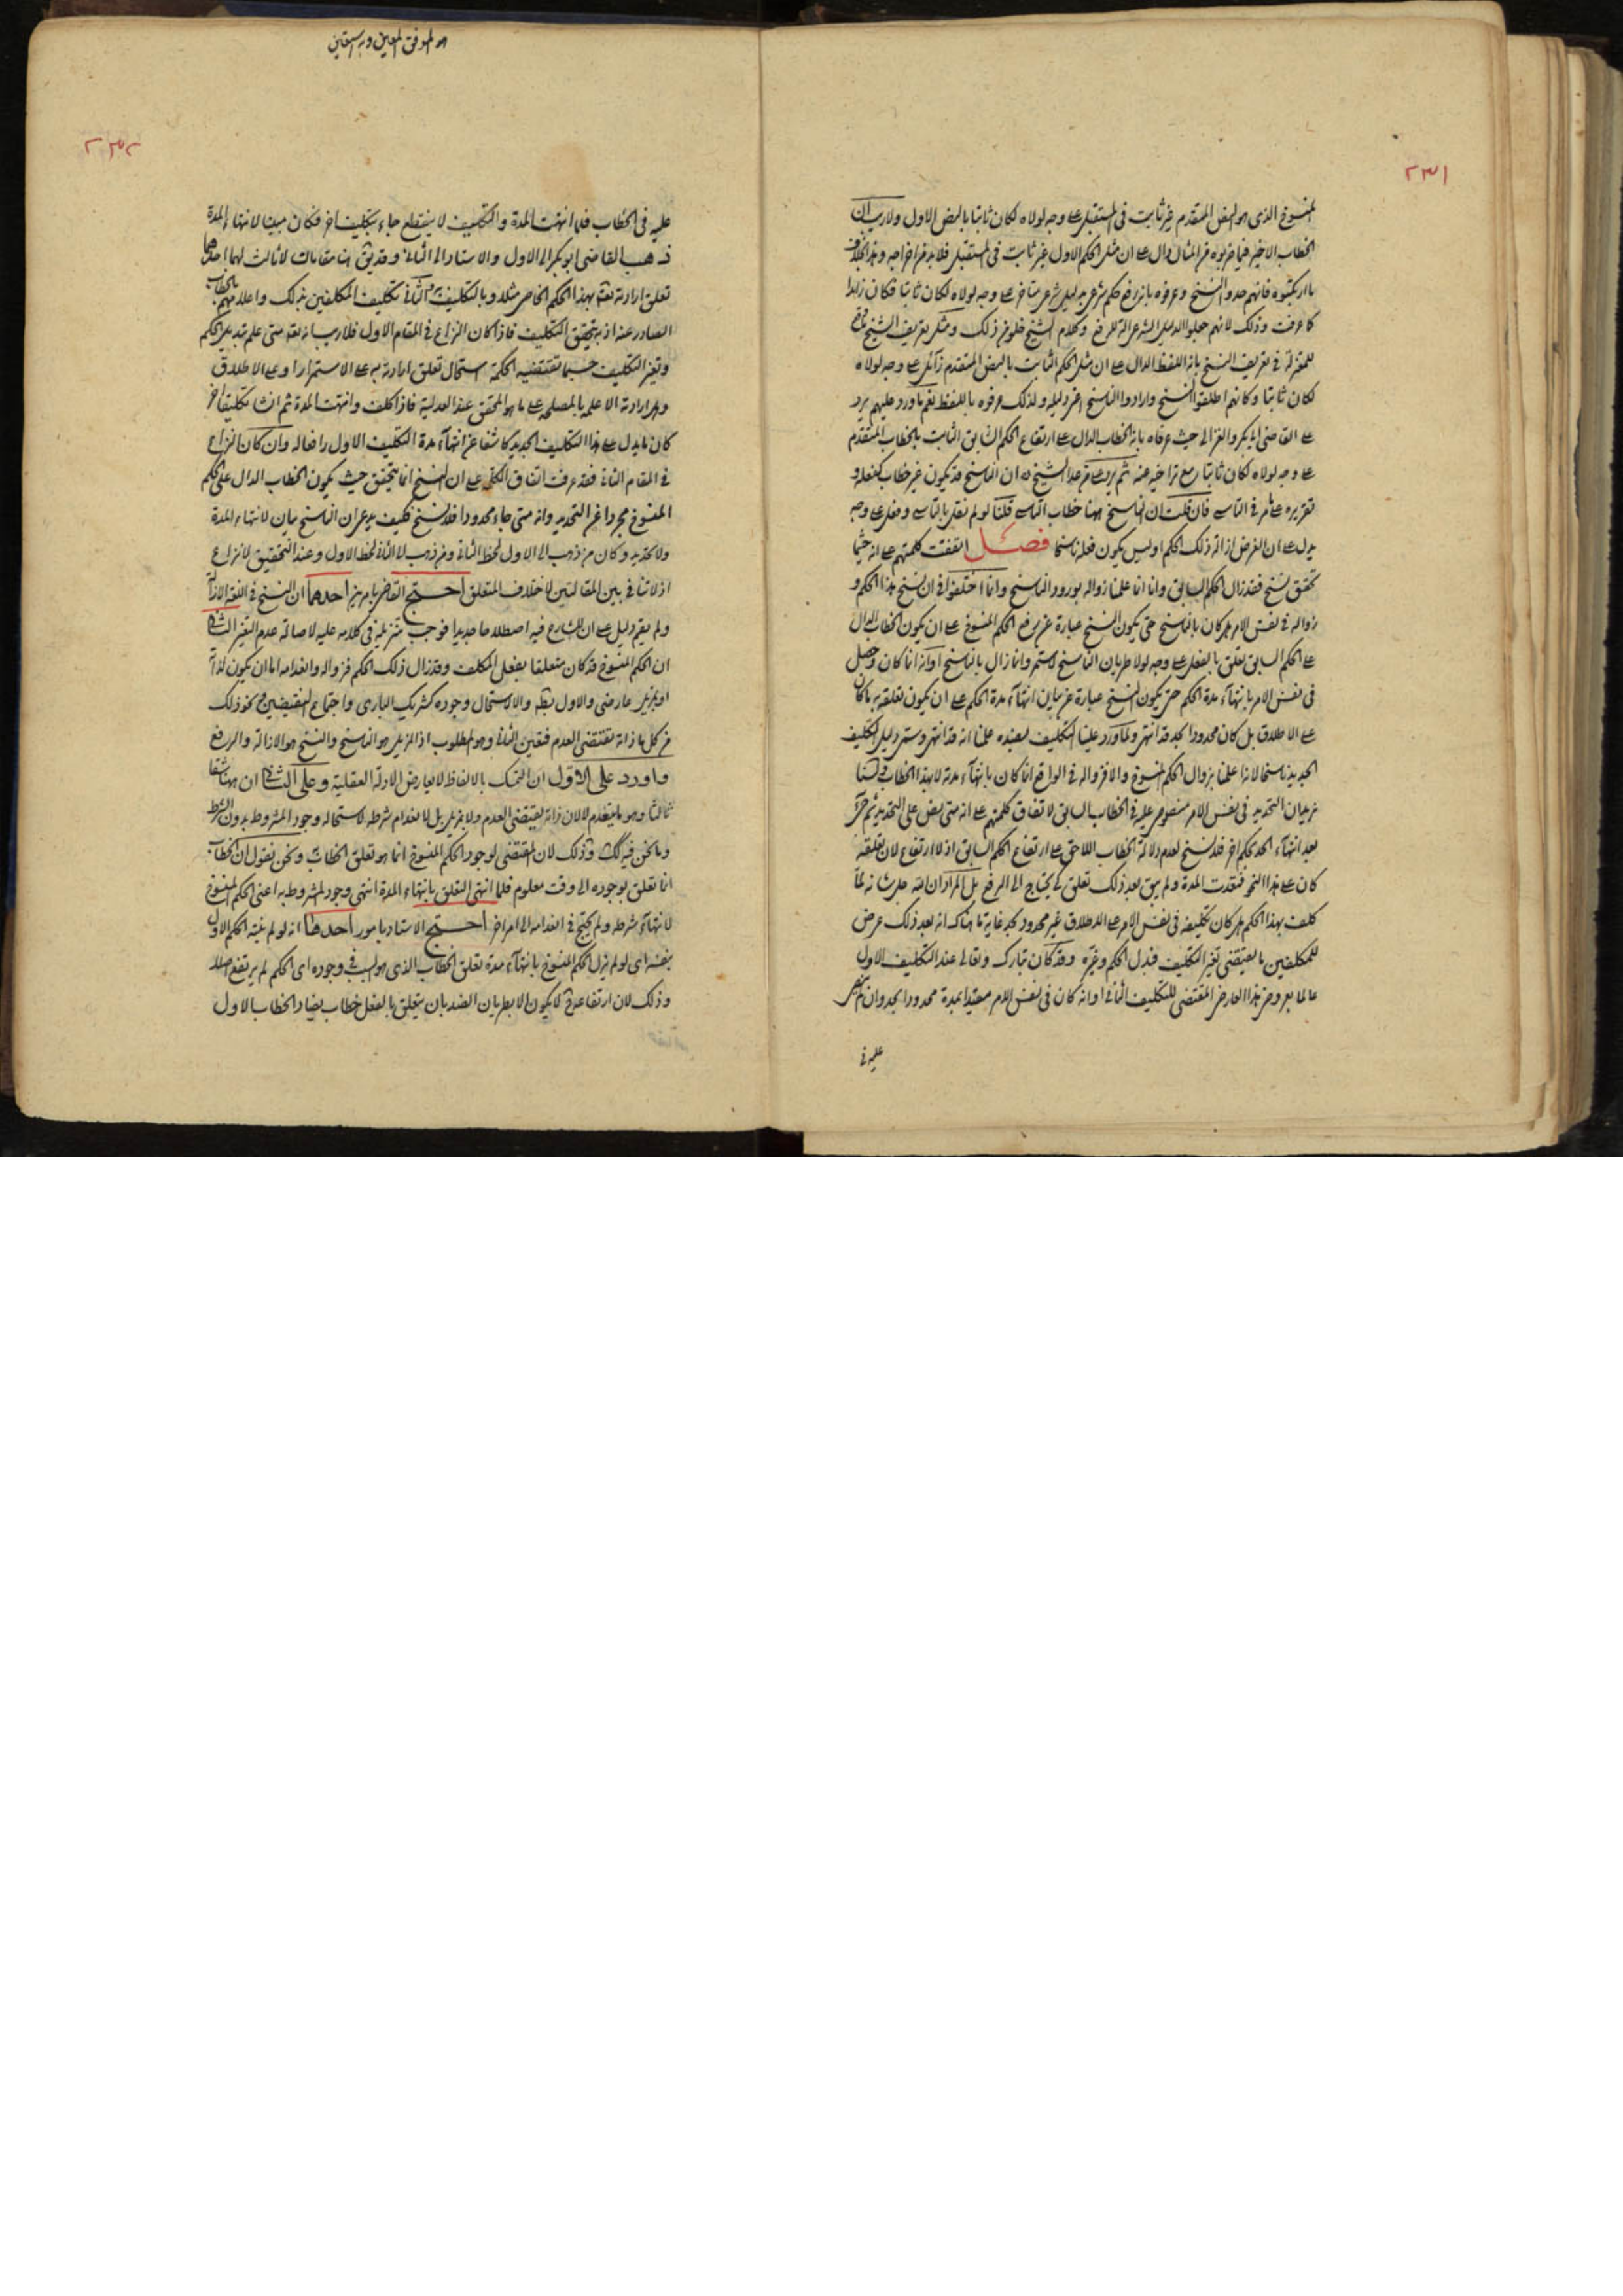 ٢٣١
المنسوخ الذى هو النص المتقدم غير ثابت فى المستقبل على وجه لولاه لكان ثابتا بالنص الاول ولا ريب ان
الخطاب الاخير فيما ضربوه من المثال دال على ان مثل الحكم الاول غير ثابت فى المستقبل فلا بد من اخراجه وهذا بخلاف
ما ارتكبوه فانهم حدوا النسخ وعرفوه بانه رفع حكم شرعى بدليل شرعى متاخر على وجه لولاه لكان ثابتا فكان زايدا
كما عرفت وذلك لانهم جعلوا الدليل الشرعى الة للرفع وكلام الشيخ خلو من ذلك ومثل تعريف الشيخ
للمعتزلة فى تعريف النسخ بانه اللفظ الدال على ان مثل الحكم الثابت بالنص المتقدم زائل على وجه لولاه
لكان ثابتا وكانهم اطلقوا النسخ وارادوا الناسخ اعنى دليله ولذلك عرفوه باللفظ نعم ما ورد عليهم يرد
على القاضى ابى بكر والغزالى حيث عرفاه بانه الخطاب الدال على ارتفاع الحكم الثابت بالخطاب المتقدم
على وجه لولاه لكان ثابتا مع تراخيه عنه ثم يرد على ما عدا الشيخ ان الناسخ قد يكون غير خطاب كفعله و
تقريره كما مر فى التاسى فان قلت ان الناسخ هنا خطاب التاسى قلنا لو لم نقل بالتاسى وفعل على وجه
يدل على ان الغرض ازالة ذلك الحكم اوليس يكون فعله ناسخا فصل اتفقت كلمتهم على انه حيثما
تحقق نسخ فقد زال الحكم السابق وانا انما علمنا زواله بورود الناسخ وانما اختلفوا فى ان نسخ هذا الحكم و
زواله فى نفس الامر هل كان بالناسخ حتى يكون النسخ عبارة عن رفع الحكم المنسوخ على ان يكون الخطاب الدال
على الحكم السابق تعلق بالفعل على وجه لولا طريان الناسخ لاستمر وانما زال بالناسخ او انه انما كان وحصل
فى نفس الامر بانتهاء مدة الحكم حتى يكون النسخ عبارة عن بيان انتهاء مدة الحكم على ان يكون تعلقه به ما كان
على الاطلاق بل كان محدودا بحد قد انتهى ولما ورد علينا التكليف بضده علمنا انه قد انتهى وسمى دليل التكليف
الجديد ناسخا لانا علمنا بزوال الحكم المنسوخ والا فزواله فى الواقع انما كان بانتهاء مدته لا بهذا الخطاب ولسنا
نريد ان التحديد فى نفس الامر منصوص عليه فى الخطاب السابق لاتفاق كلمتهم على انه متى نص على التحديد ثم
بعد انتهاء الحد بحكم اخر فلا نسخ لعدم دلالة الخطاب اللاحق على ارتفاع الحكم السابق اذ لا ارتفاع لان تعلقه
كان على هذا النحو فنفدت المدة ولم يبق بعد ذلك تعلق كى يحتاج الى الرفع بل المراد ان الله جل شانه لما
كلف بهذا الحكم هل كان تكليفه فى نفس الامر على الاطلاق غير محدود بحد غاية ما هناك انه بعد ذلك عرض
للمكلفين ما يقتضى تغير التكليف فبدل الحكم وغيره وقد كان تبارك وتعالى عند التكليف الاول
عالما بعروض هذا العارض المقتضى للتكليف الثانى او انه كان فى نفس الامر مقيدا بمدة محدودا بحد وان لم ينص
عليه فى
هو الموفق المعين وبه نستعين
٢٣٢
عليه فى الخطاب فلما انتهت المدة والتكليف لا ينقطع جاء بتكليف اخر فكان مبينا لانتهاء المدة
ذهب القاضى ابو بكر الى الاول والاستاد الى الثانى وقد يقال هنا مقامات لا ثالث لهما احدهما
تعلق ارادته تعالى بهذا الحكم الخاص مثلا وبالتكليف به الثانى تكليف المكلفين بذلك واعلامهم بالخطاب
الصادر عنه اذ به يتحقق التكليف فاذا كان النزاع فى المقام الاول فلا ريب انه تعالى متى علم تبديل الحكم
وتغير التكليف حسبما تقتضيه الحكمة استحال تعلق ارادته به على الاستمرار او على الاطلاق
وهل ارادته الا علمه بالمصلحة على ما هو المحقق عند العدلية فاذا كلف وانتهت المدة ثم انشا تكليفا اخر
كان ما يدل على هذا التكليف الجديد كاشفا عن انتهاء مدة التكليف الاول لا رافعا له وان كان النزاع
فى المقام الثانى فقد عرفت اتفاق الكل على ان النسخ انما يتحقق حيث يكون الخطاب الدال على الحكم
المنسوخ مجردا عن التحديد وانه متى جاء محدودا فلا نسخ فكيف يدعى ان الناسخ بيان لانتهاء المدة
ولا تحديد وكان من ذهب الى الاول لحظ الثانى ومن ذهب الى الثانى لحظ الاول وعند التحقيق لا نزاع
اذ لا تنافى بين المقالتين لاختلاف المتعلق احتج القاضى بامرين احدهما ان النسخ فى اللغة الازالة
ولم يقم دليل على ان للشارع فيه اصطلاحا جديدا فوجب تنزيله فى كلامه عليه لاصالة عدم التغير الثانى
ان الحكم المنسوخ قد كان متعلقا بفعل المكلف وقد زال ذلك الحكم فزواله وانعدامه اما ان يكون لذاته
او بمزيل عارضى والاول بط والا لاستحال وجوده كشريك البارى واجتماع النقيضين ونحو ذلك
من كل ما ذاته تقتضى العدم فتعين الثانى وهو المطلوب اذ المزيل هو الناسخ والنسخ هو الازالة والرفع
واورد على الاول ان التمسك بالالفاظ لا يعارض الادلة العقلية وعلى الثانى ان هنا شقا
ثالثا وهو ما ينعدم لا لان ذاته يقتضى العدم ولا بمزيل بل لانعدام شرطه لاستحالة وجود المشروط بدون الشرط
وما نحن فيه كذلك وذلك لان المقتضى لوجود الحكم المنسوخ انما هو تعلق الخطاب ونحن نقول ان الخطاب
انما تعلق بوجوده الى وقت معلوم فلما انتهى التعلق بانتهاء المدة انتهى وجود المشروط به اعنى الحكم المنسوخ
لانتهاء شرطه ولم يحتج فى انعدامه الى امر اخر احتج الاستاد بامور احدها انه لو لم ينته الحكم الاول
بنفسه اى لو لم يزل الحكم المنسوخ بانتهاء مدة تعلق الخطاب الذى هو السبب فى وجوده اى الحكم لم يرتفع اصلا
وذلك لان ارتفاعه لا يكون الا بطريان الضد بان يتعلق بالفعل خطاب يضاد الخطاب الاول